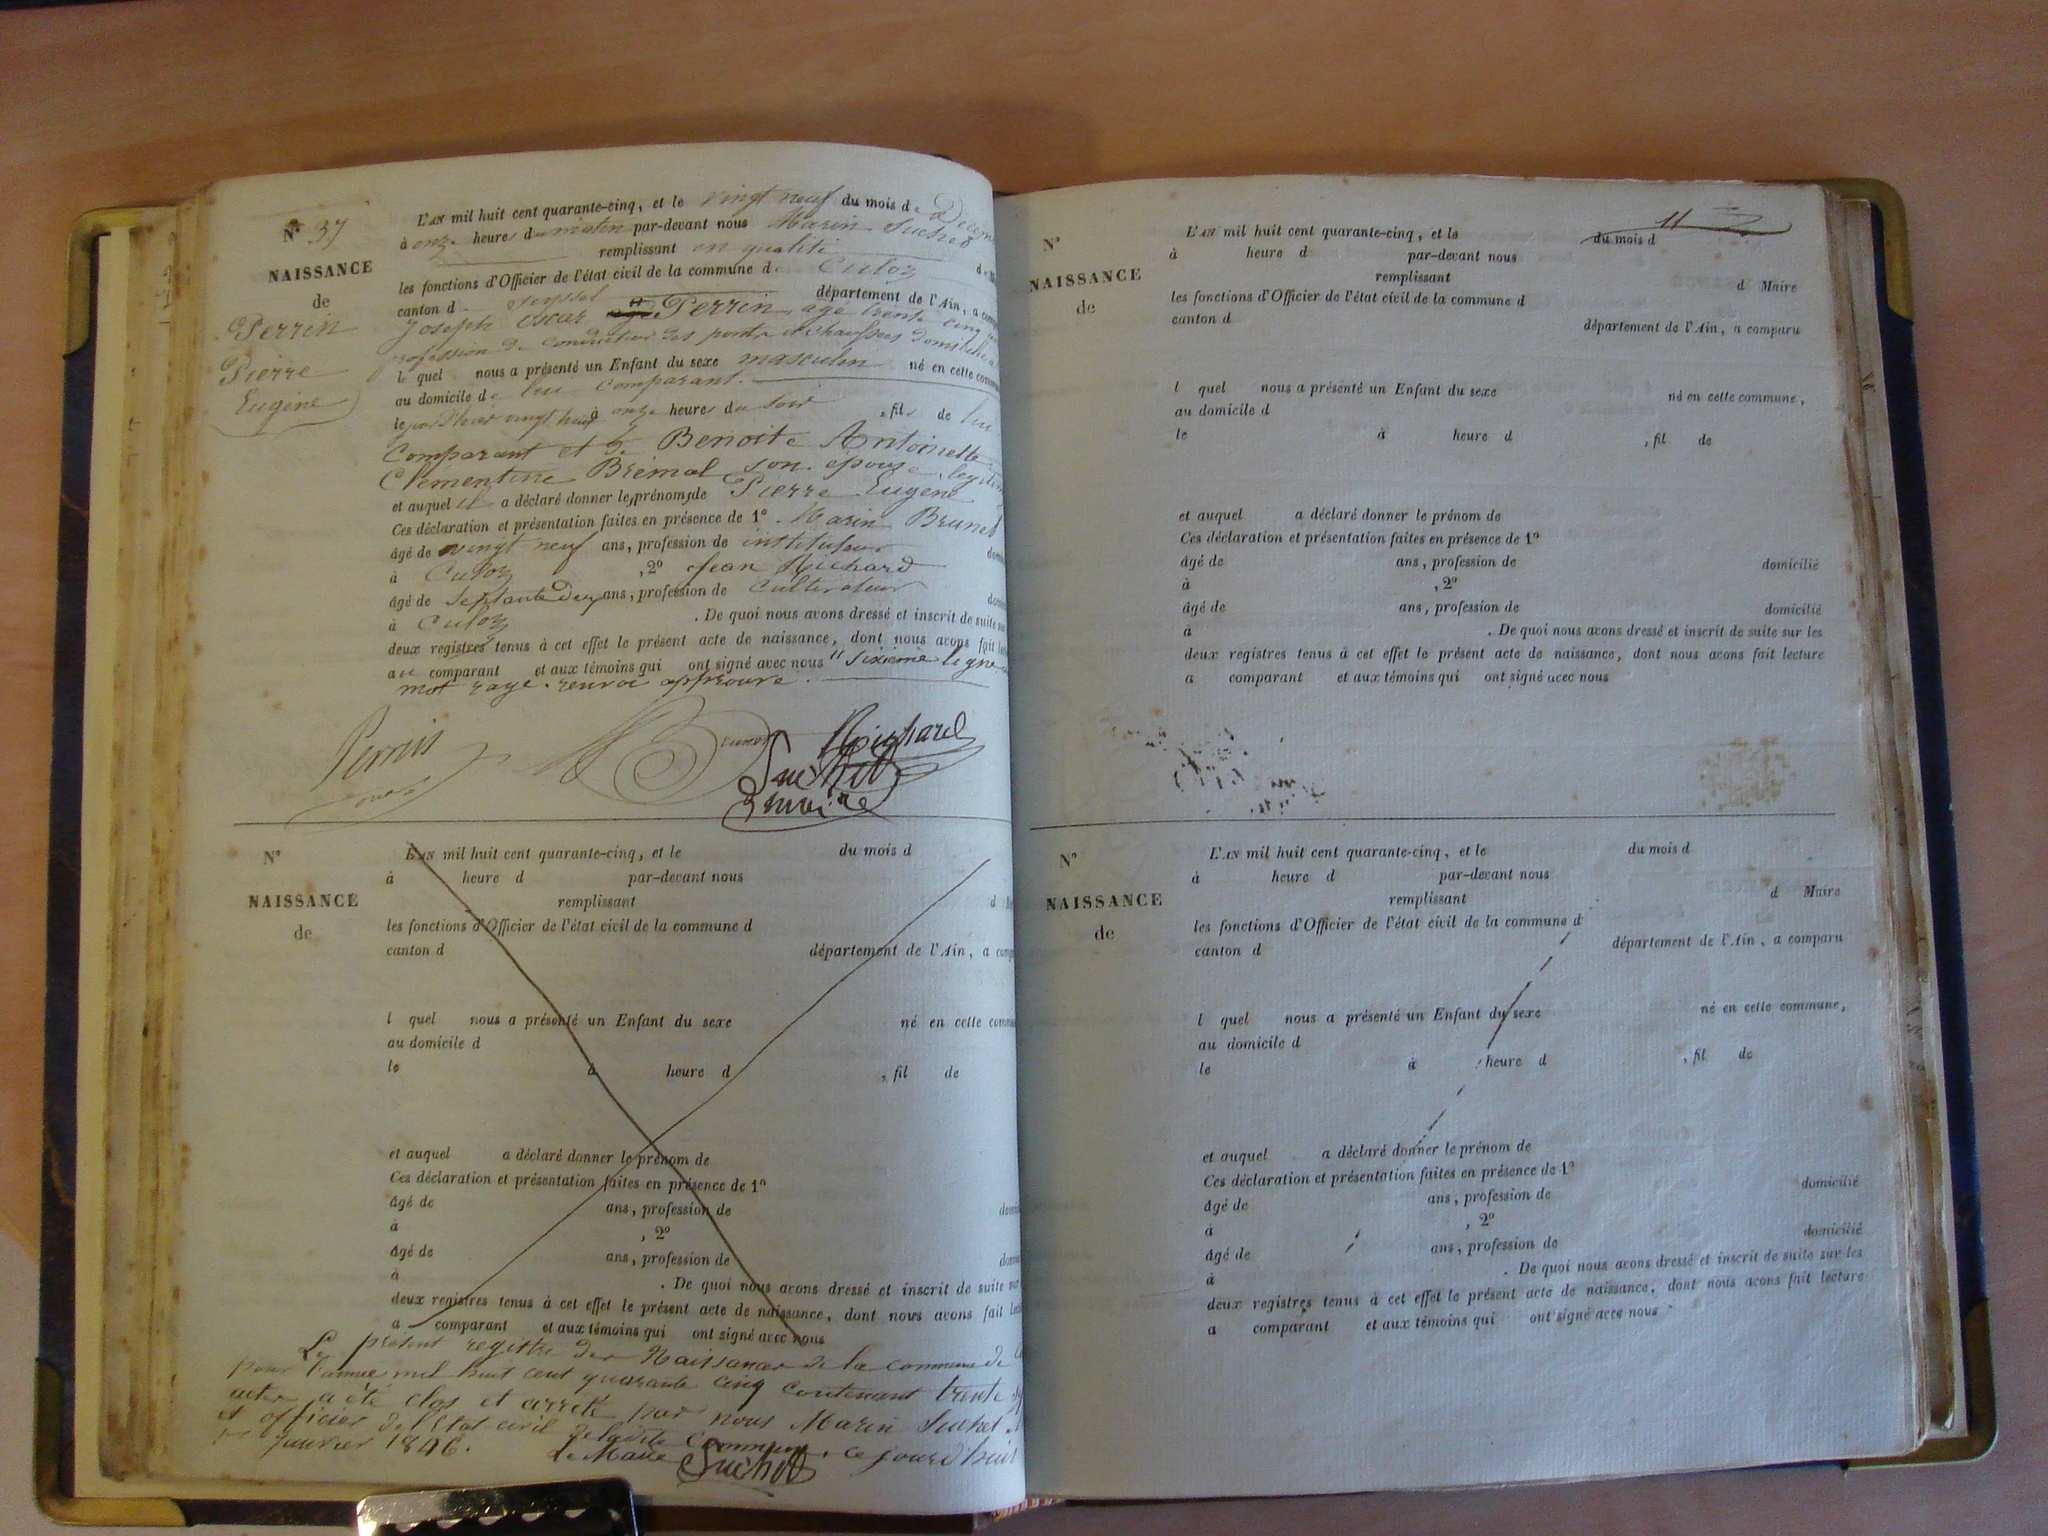 N° 37
NAISSANCE
de
Perrin
Pierre
Eugène
L'AN mil huit cent quarante-cinq, et le vingt neuf du mois de Decem
à onze heures du matin par-devant nous Marin Suchet
remplissant en qualité d
les fonctions d'Officier de l'état civil de la commune de Culoz
canton d Seyssel département de l'Ain, a comp
Joseph Oscar Perrin agé trente cinq
profession de conducteur des ponts et chaussées domicilié
l quel nous a présenté un Enfant du sexe masculin né en cette commune
au domicile de lui comparant.
le jour d'hier vingt huit à onze heures du soir , fils de lui
comparant et de Benoite Antoinette
Clementine Brémal son épouse legitim
et auquel il a déclaré donner les prénoms de Pierre Eugène
Ces déclaration et présentation faites en présence de 1° Marin Brunet
âgé de vingt neuf ans, profession de instituteur dom
à Culoz , 2° Jean Richard
âgé de septante deux ans, profession de Cultivateur dom
à Culoz . De quoi nous avons dressé et inscrit de suite sur
deux registres tenus à cet effet le présent acte de naissance, dont nous avons fait lec
au comparant et aux témoins qui ont signé avec nous " sixième ligne
mot rayé. renvoi approuvé.
Perrin Brunet Richard
Suchet
maire
N°
NAISSANCE
de
L'AN mil huit cent quarante-cinq, et le du mois d
à heure d par-devant nous
remplissant d
les fonctions d'Officier de l'état civil de la commune d
canton d département de l'Ain, a comp
l quel nous a présenté un Enfant du sexe né en cette commun
au domicile d
le à heure d , fil de
et auquel a déclaré donner le prénom de
Ces déclaration et présentation faites en présence de 1°
âgé de ans, profession de dom
à , 2°
âgé de ans, profession de dom
à . De quoi nous avons dressé et inscrit de suite sur
deux registres tenus à cet effet le présent acte de naissance, dont nous avons fait lec
a comparant et aux témoins qui ont signé avec nous
Le présent registre des Naissances de la commune de
pour l'année mil huit cent quarante cinq contenant trente
actes a été clos et arreté par nous Marin Suchet
et officier de l'Etat civil de ladite commune, ce jourd'hui
janvier 1846. Le Maire Suchet
11
N°
NAISSANCE
de
L'AN mil huit cent quarante-cinq, et le du mois d
à heure d par-devant nous
remplissant d Maire
les fonctions d'Officier de l'état civil de la commune d
canton d département de l'Ain, a comparu
l quel nous a présenté un Enfant du sexe né en cette commune,
au domicile d
le à heure d , fil de
et auquel a déclaré donner le prénom de
Ces déclaration et présentation faites en présence de 1°
âgé de ans, profession de domicilié
à , 2°
âgé de ans, profession de domicilié
à . De quoi nous avons dressé et inscrit de suite sur les
deux registres tenus à cet effet le présent acte de naissance, dont nous avons fait lecture
a comparant et aux témoins qui ont signé avec nous
N°
NAISSANCE
de
L'AN mil huit cent quarante-cinq, et le du mois d
à heure d par-devant nous
remplissant d Maire
les fonctions d'Officier de l'état civil de la commune d
canton d département de l'Ain, a comparu
l quel nous a présenté un Enfant du sexe né en cette commune,
au domicile d
le à heure d , fil de
et auquel a déclaré donner le prénom de
Ces déclaration et présentation faites en présence de 1°
âgé de ans, profession de domicilié
à , 2°
âgé de ans, profession de domicilié
à . De quoi nous avons dressé et inscrit de suite sur les
deux registres tenus à cet effet le présent acte de naissance, dont nous avons fait lecture
a comparant et aux témoins qui ont signé avec nous